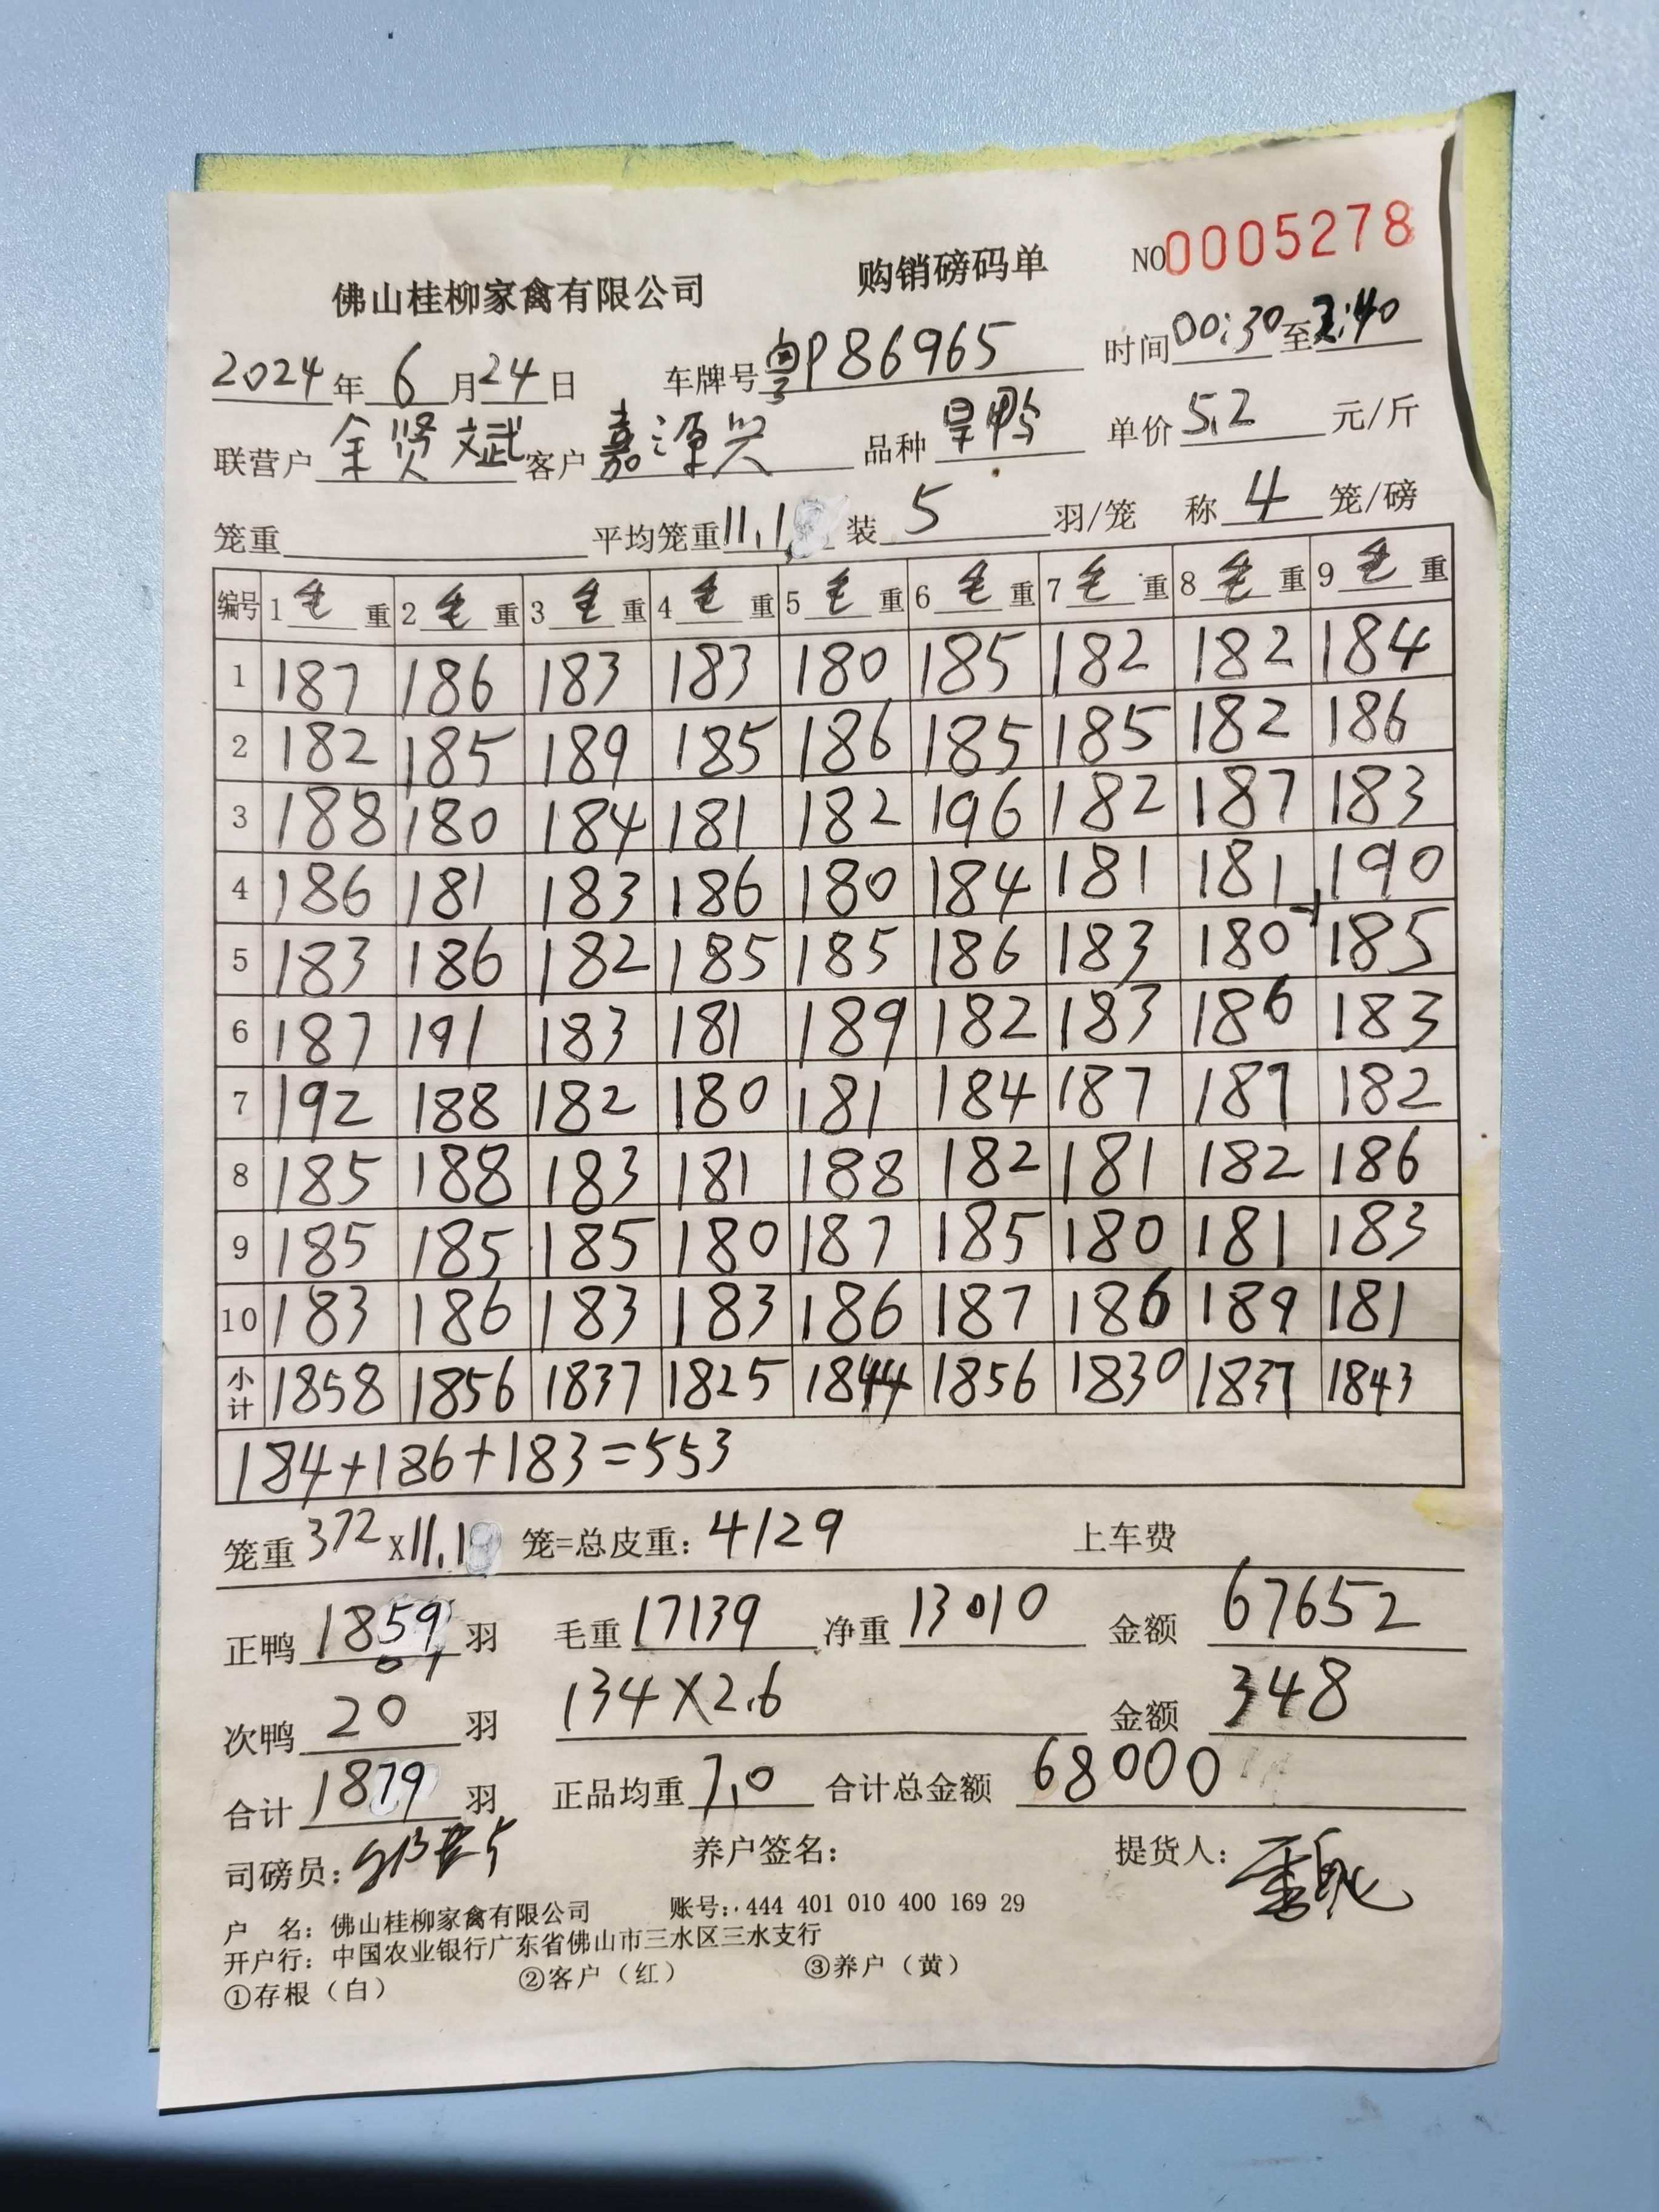 佛山桂柳家禽有限公司 购销磅码单 NO0005278
2024年6月24日 车牌号粤P86965 时间00:30至2:40
联营户余贤斌客户嘉源兴 品种旱鸭 单价5.2元/斤
笼重 平均笼重11.1 装5羽/笼 称4笼/磅
编号 1毛重 2毛重 3毛重 4毛重 5毛重 6毛重 7毛重 8毛重 9毛重
1 187 186 183 183 180 185 182 182 184
2 182 185 189 185 186 185 185 182 186
3 188 180 184 181 182 196 182 187 183
4 186 181 183 186 180 184 181 181 190
5 183 186 182 185 185 186 183 180 185
6 187 191 183 181 189 182 183 186 183
7 192 188 182 180 181 184 187 187 182
8 185 188 183 181 188 182 181 182 186
9 185 185 185 180 187 185 180 181 183
10 183 186 183 183 186 187 186 189 181
小计 1858 1856 1837 1825 1844 1856 1830 1837 1843
184+186+183=553
笼重372x11.1 笼=总皮重:4129 上车费
正鸭1859羽 毛重17139 净重13010 金额67652
次鸭20羽 134×2.6 金额348
合计1879羽 正品均重7.0 合计总金额68000
司磅员: 养户签名: 提货人:
户 名:佛山桂柳家禽有限公司 账号:444 401 010 400 169 29
开户行:中国农业银行广东省佛山市三水区三水支行
①存根(白) ②客户(红) ③养户(黄)